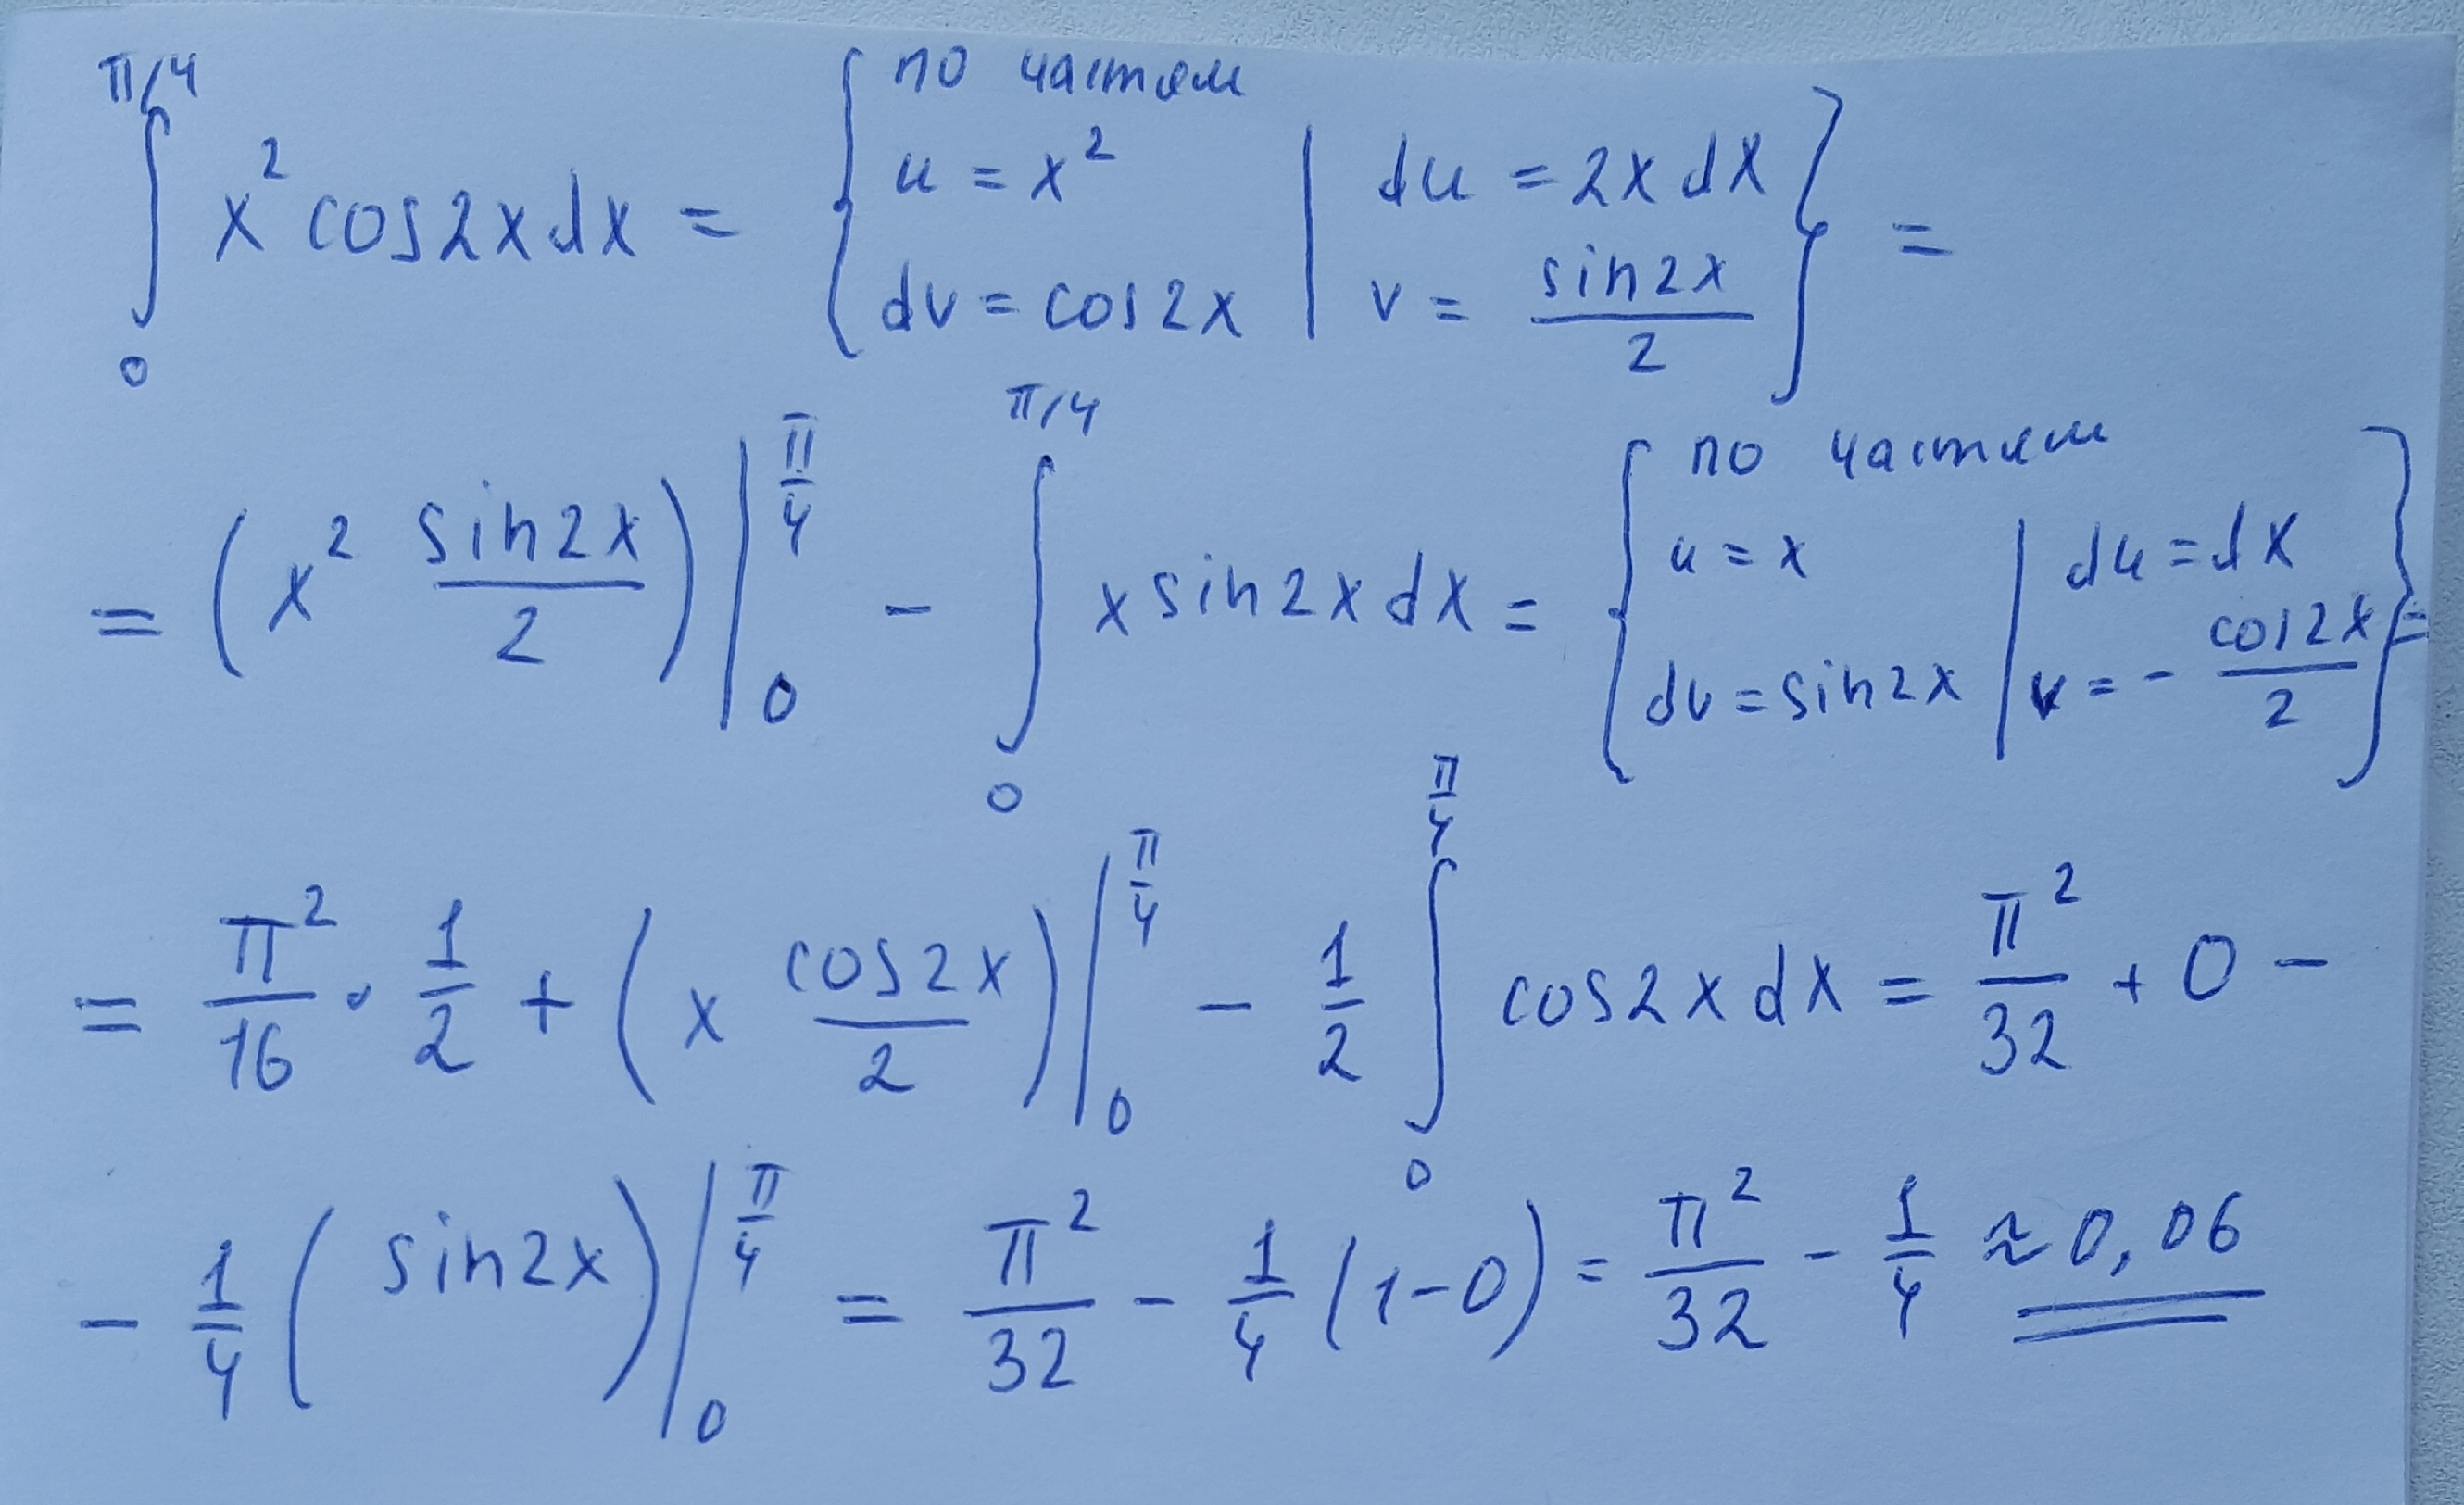 ∫₀^{π/4} x² cos2x dx = { по частям u = x² | du = 2x dx dv = cos2x | v = sin2x/2 } =
= (x² sin2x/2) |₀^{π/4} - ∫₀^{π/4} x sin2x dx = { по частям u = x | du = dx dv = sin2x | v = - cos2x/2 } =
= π²/16 · 1/2 + (x cos2x/2) |₀^{π/4} - 1/2 ∫₀^{π/4} cos2x dx = π²/32 + 0 -
- 1/4 (sin2x) |₀^{π/4} = π²/32 - 1/4 (1-0) = π²/32 - 1/4 ≈ 0,06